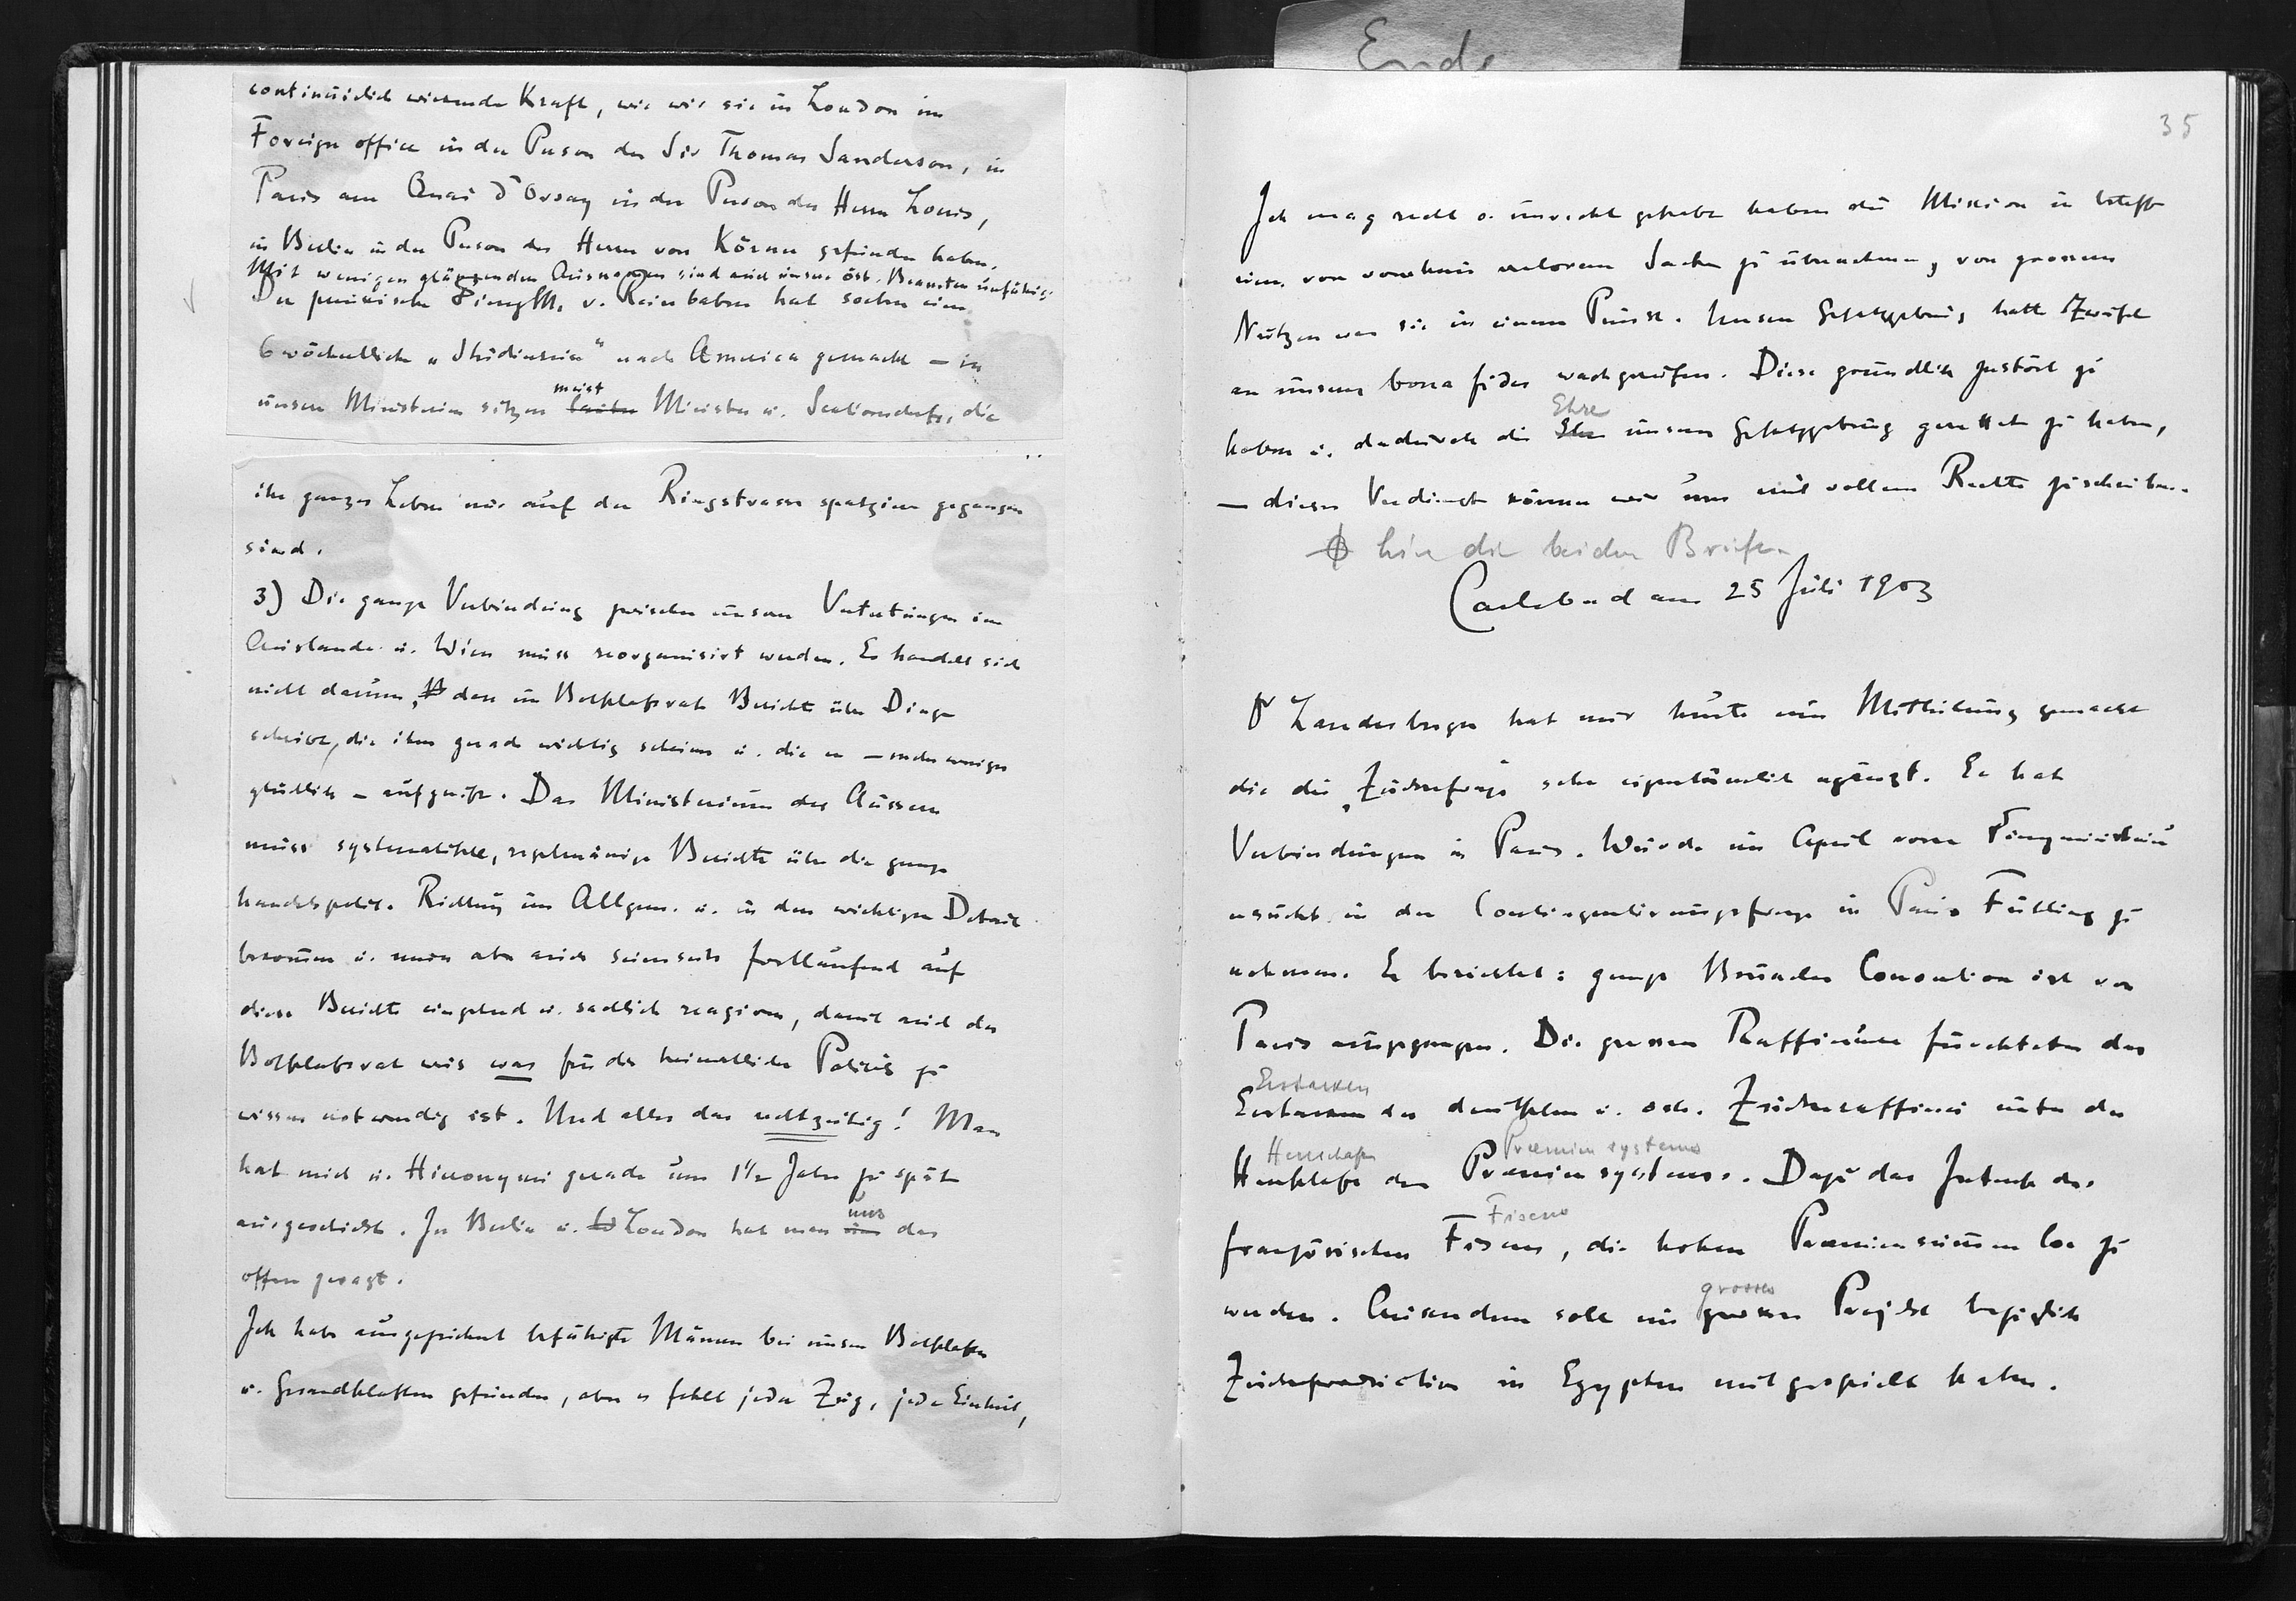 Ende
continuirlich wirkende Kraft, wie wir sie in London im
Foreign office in der Person des Sir Thomas Sanderson, in
Paris am Quai d'Orsay in der Person des Herrn Louis,
in Berlin in der Person des Herrn von Körner gefunden haben.
Mit wenigen glänzenden Ausnamen sind auch unsere öst. Beamten unfähig.
Der preussische v. Rheinbaben hat soeben eine
6 wöchentliche „Studienreise" nach America gemacht – in
unseren Ministerien sitzen meist Minister u. Sectionschefs, die
ihr ganzes Leben nur auf der Ringstrasse spatzieren gegangen
sind.
3) Die ganze Verbindung zwischen unseren Vertretungen im
Auslande u. Wien muss reorganisirt werden. Es handelt sich
nicht darum, dass ein Botschaftsrath Berichte über Dinge
schreibt, die ihm gerade wichtig scheinen u. die er – mehr weniger
glücklich – aufgreift. Das Ministerium des Äussern
muss systematische, regelmässige Berichte über die ganze
handelspolit. Richtung im Allgem. u. in den wichtigen Details
bekommen u. muss aber auch seinerseits fortlaufend auf
diese Berichte eingehend u. sachlich reagiren, damit auch der
Botschaftsrat weis was für die heimatliche Politik zu
wissen notwendig ist. Und alles das rechtzeitig! Man
hat mich u. Hieronymi gerade um 1½ Jahre zu spät
ausgeschickt. In Berlin u. London hat man uns das
offen gesagt.
Ich habe ausgezeichnet befähigte Männer bei unseren Botschaften
u. Gesandtschaften gefunden, aber es fehlt jeder Zug, jede Einheit,
35
Ich mag recht o. unrecht gehabt haben die Mission in betreff
einer von vorneherein verlorenen Sache zu übernehmen, von grossem
Nutzen war sie in einem Punkte. Unsere Gesetzgebung hatte Zweifel
an unserer bona fides wachgerufen. Diese gründlich zerstört zu
haben u. dadurch die Ehre unserer Gesetzgebung gerettet zu haben,
– dieses Verdienst können wir uns mit vollem Rechte zuschreiben.
hier die beiden Briefe.
Carlsbad am 25 Juli 1903
Landesberger hat mir heute eine Mittheilung gemacht
die die „Zuckerfrage" sehr eigentümlich ergänzt. Er hat
Verbindungen in Paris. Wurde im April vom Finanzministerium
ersucht in der Contingentirungsfrage in Paris Fühlung zu
nehmen. Er berichtet: ganze Brüsseler Convention ist von
Paris ausgegangen. Die grossen Raffineure fürchteten das
Erstarken
Erstarken der deutschen u. öst. Zuckerraffinerie unter der
Herrschaft Præmiensystems
Herrschaft des Præmiensystems. Dazu das Interesse des
Fiscus
französischen Fiscus, die hohen Præmiensummen los zu
grosses
werden. Ausserdem soll ein grosses Projekt bezüglich
Zuckerproduction in Egypten mitgespielt haben.